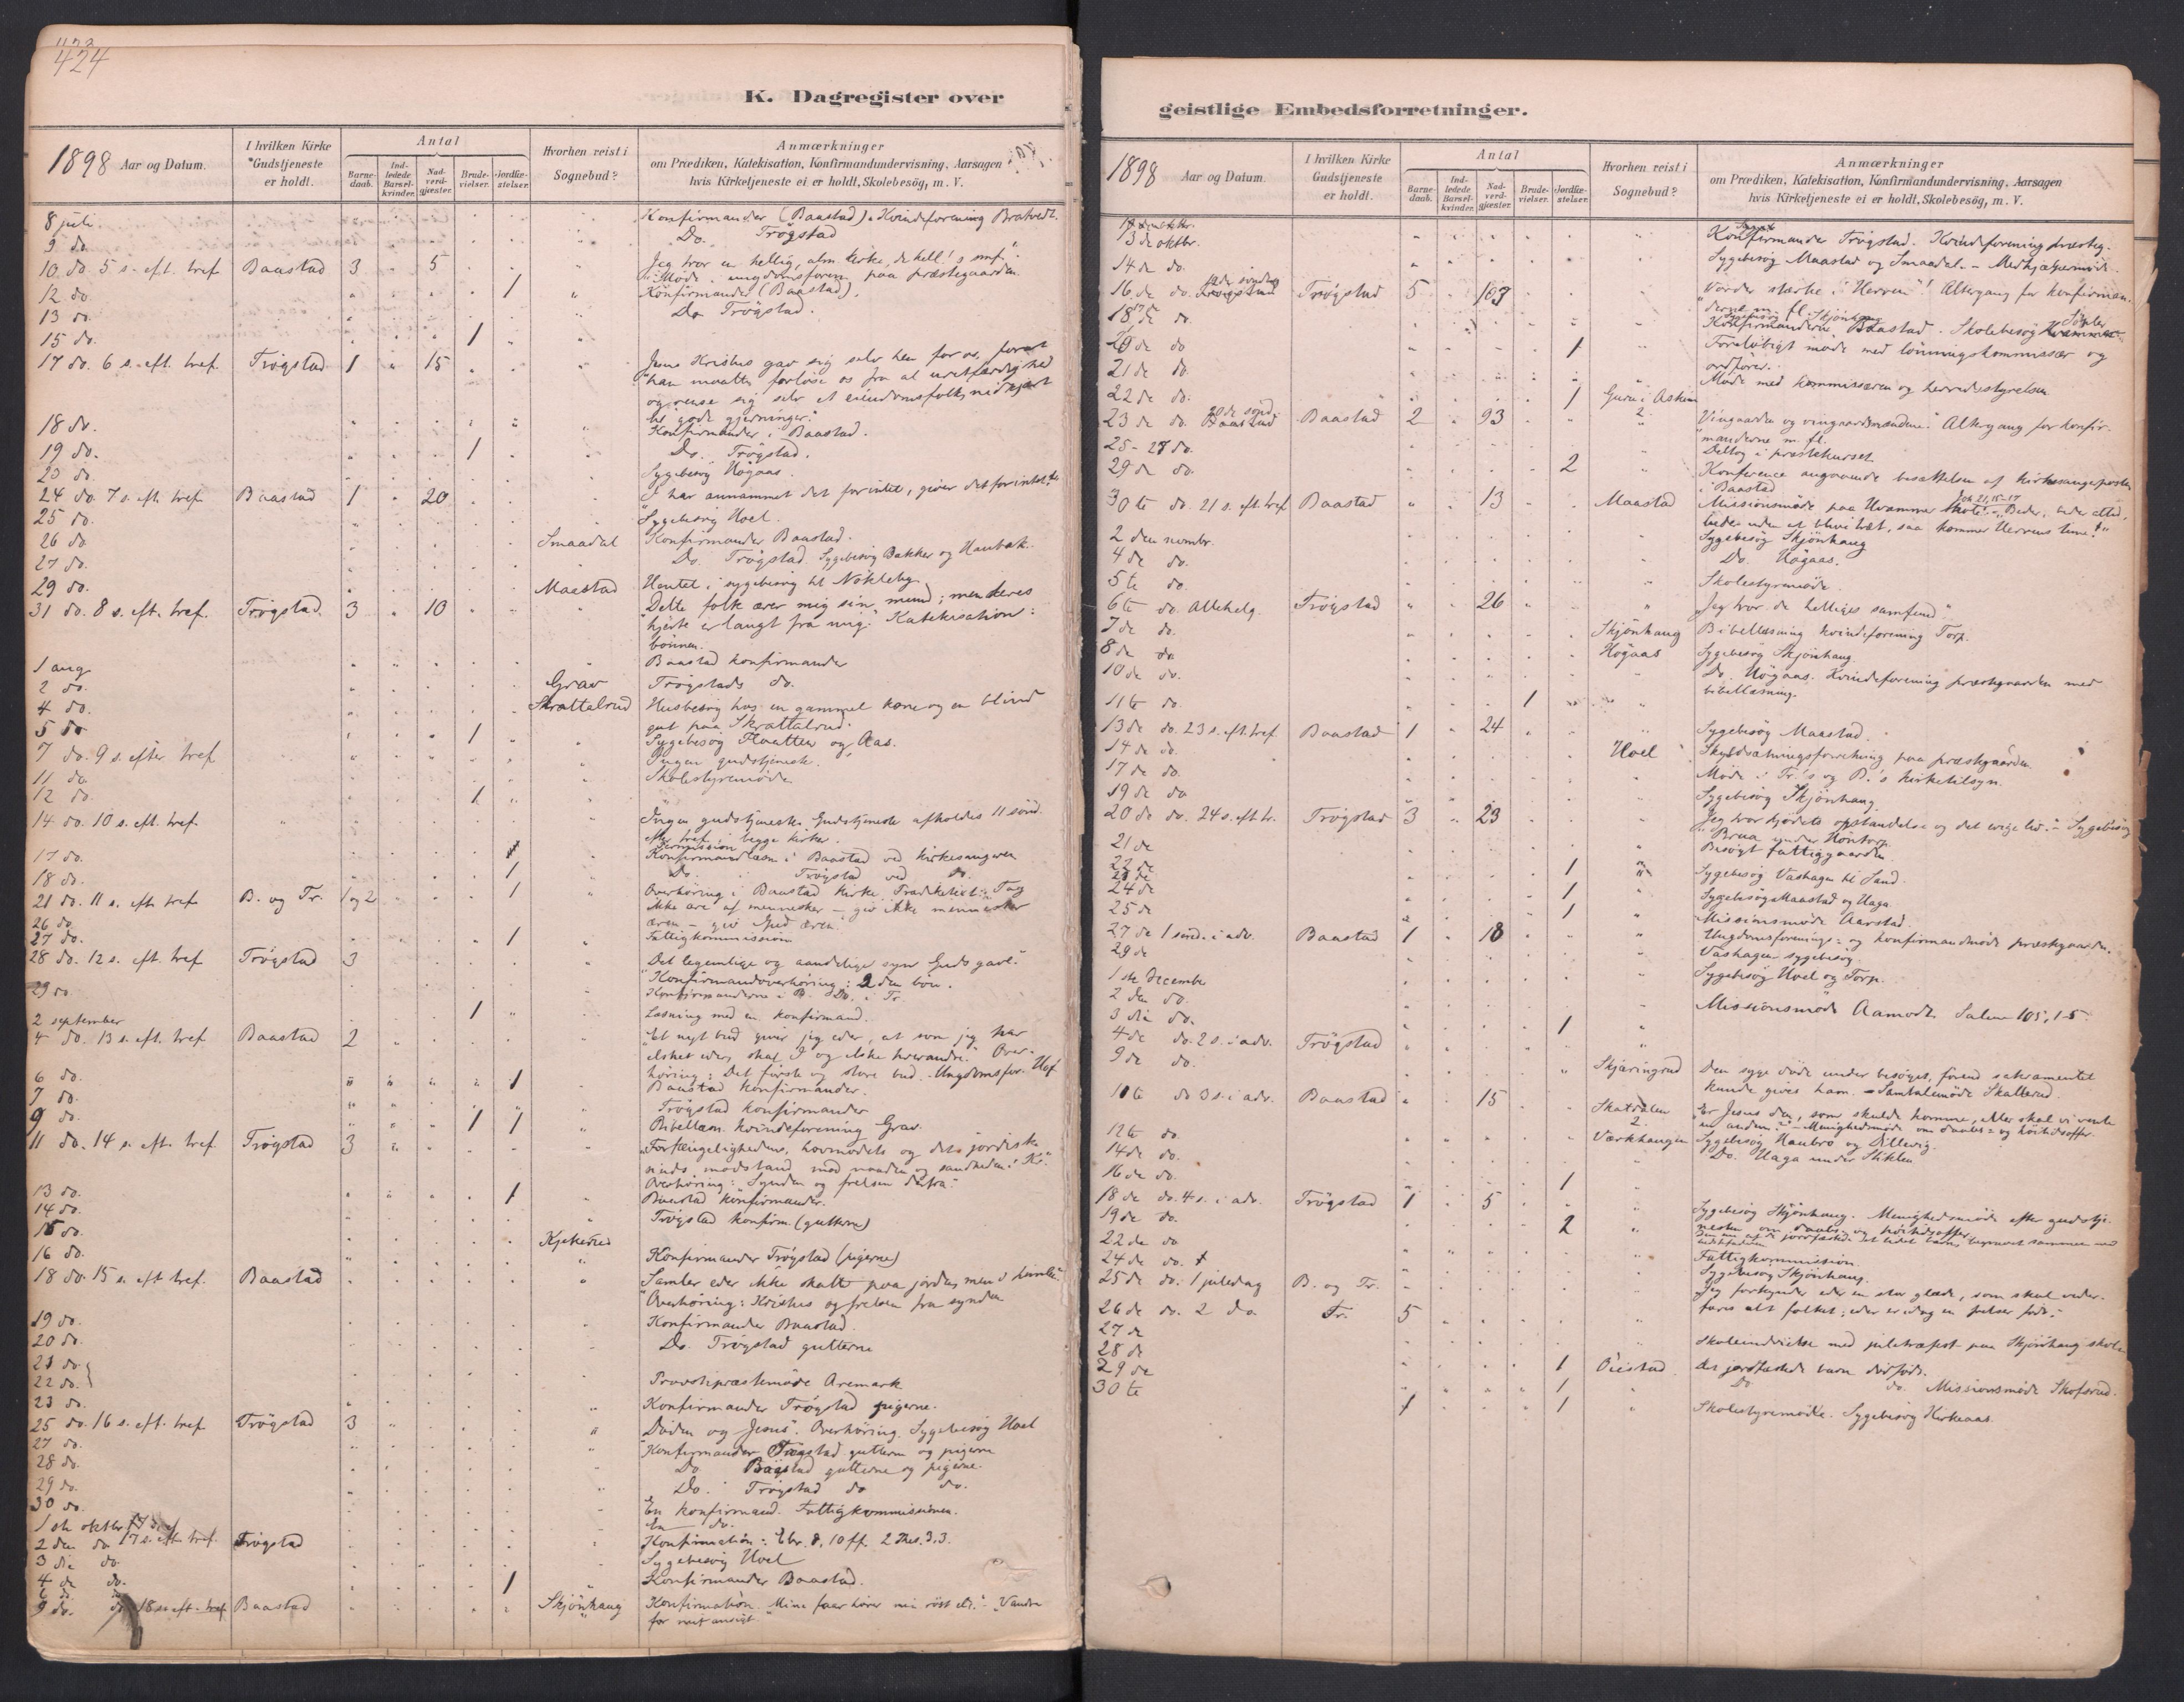 424
K. Dagregister over
1898 Aar og Datum.
I hvilken Kirke Gudstjeneste er holdt.
Antal
Barnedaab.
Indledede Barselkvinder.
Nadverdgjæster.
Brudevielser.
Jordfæstelser.
Hvorhen reist i Sognebud?
Anmærkninger
om Prædiken, Katekisation, Konfirmandundervisning, Aarsagen
hvis Kirketjeneste ei er holdt, Skolebesög, m. V.
8 juli. Konfirmander (Baastad). Kvindeforening Bratvedt.
9 do. Do. Trögstad
10 do. 5 s. eft. tref. Baastad 3 5 Jeg tror en hellig, alm. kirke, de hell.s smf.
Möde i ungdomsforen. paa præstegaarden
12 do 1 Konfirmander (Baastad).
13 do. Do Trögstad.
15 do. 1
17 do. 6 s. eft. tref. Trögstad 1 15 Jesus Kristus gav sig selv hen for os, forat
han maatte forlöse os fra al uretfærdighed
og rense sig selv et eiendomsfolk, nidkjært
til gode gjerninger.
18 do. Konfirmander i Baastad.
19 do. 1 Do. Trögstad.
23 do. Sygebesög Högaas.
24 do. 7 s. eft. tref. Baastad 1 20 I har annammet det forintet, giver det forintet
25 do. Sygebesög Hoel.
26 do. Smaadal Konfirmander Baastad.
27 do. Do. Trögstad. Sygebesög Bakker og
29 do. Maastad Hentet i sygebesög til Nökleby
31 do. 8 s. eft. tref. Trögstad. 3 10 Dette folk ærer mig sin mund; men deres
hjerte er langt fra mig. Katekisation:
bönnen.
1 aug Baastad konfirmander
2 do. Grav Trögstads do.
4 do. Skrattalrud Husbesög hos en gammel kone og en blind
gut paa Skrattalrud.
5 do 1 Sygebesög og Aas.
7 do. 9 s. efter tref. Ingen gudstjeneste.
11 do. Skolestyremöde
12 do. 1
14 do. 10 s. eft. tref. Ingen gudstjeneste. Gudstjeneste afholdes 11 sönd.
efter tref. i begge kirker.
17 do. Konfirmandlæsn. i Baastad ved kirkesangeren
18 do. 1 Do. Trögstad ved do.
21 do. 11 s. eft. tref. B. og Tr. 1 og 2 1 Overhöring i Baastad kirke.
ikke ære af mennesker – giv ikke mennesker
æren – giv Gud æren.
26 do
27 do. 1 Fattigkommission
28 do. 12 s. eft. tref. Trögstad 3 Det legemlige og aandelige syn Guds gave.
Konfirmandoverhöring: 2 den bön.
29 do Konfirmanderne i B. Do. i Tr.
2 september 1 Læsning med en konfirmand.
4 do. 13 s. eft. tref. Baastad 2 Et nyt bud giver jeg eder, at som jeg har
elsket eder, skal I og elske hverandre. Over-
höring: Det förste og store bud. Ungdomsfor.
6 do. 1 Baastad konfirmander.
7 do. Trögstad konfirmander
9 do. 1 1 Bibellæsn. kvindeforening Grav.
11 do. 14 s. eft. tref. Trögstad 3 Forfængelighedens, hovmodets og det jordiske
sinds modstand mod naaden og sandheden
Overhöring: Synden og frelsen derfra.
13 do. 1 Baastad konfirmander.
14 do. Trögstad konfirm. (gutterne)
15 do.
16 do. Konfirmander Trögstad (pigerne)
18 do. 15 s. eft tref. Baastad Samler eder ikke skatte paa jorden, men i himlen
Overhöring: Kristus og frelsen fra synden
19 do. Konfirmander Baastad.
20 do. Do. Trögstad gutterne
21 do.
22 do. Provstipræstemöde Aremark
23 do. Konfirmander Trögstad pigerne.
25 do. 16 s. eft. tref. Trögstad 3 Döden og Jesus. Overhöring. Sygebesög Hoel
27 do. Konfirmander Trögstad gutterne og pigerne
28 do. Do Baastad gutterne og pigerne.
29 do. Do. Trögstad do do.
30 do. En konfirmand. Fattigkommissionen.
1 ste oktbr En do.
2 den do 17 s. eft. tref. Trögstad Konfirmation: Ebr. 8, 10 ff. 2 Thes. 3,3.
3 die do. Sygebesög Hoel
4 de do. 1 Konfirmander Baastad.
9 do. 18 s. eft. tref. Baastad Skjönhaug Konfirmation. Mine faar hører min röst etc. – Vandre
for mit ansigt.
geistlige Embedsforretninger.
1898 Aar og Datum.
I hvilken Kirke Gudstjeneste er holdt.
Antal
Barnedaab.
Indledede Barselkvinder.
Nadverdgjæster.
Brudevielser.
Jordfæstelser.
Hvorhen reist i Sognebud?
Anmærkninger
om Prædiken, Katekisation, Konfirmandundervisning, Aarsagen
hvis Kirketjeneste ei er holdt, Skolebesög, m. V.
13 de oktbr. Konfirmander Trögstad. Kvindeforening præsteg.
14 de do. Sygebesög Maastad og Smaadal. – Medhjælpermöde
16 de do. Trögstad 5 107 Vorder stærke i Herren! Altergang for konfirman-
derne m. fl.
18 de do. Konfirmanderne Baastad. Skolebesög
do 1 Forelöbigt möde med lönningskommissær og
ordförer.
21 de do. Möde med kommissæren og herredsstyrelsen
22 de do. 1 i Askim
23 de do. 20 de sönd. Baastad 2 93 2 Vingaarden og vingaardsmændene. Altergang for konfir-
manderne m. fl.
25 – 27 do. Deltog i præstekurset
29 de do. 2 Konference angaaende besættelsen af kirkesangerposten
i Baastad
30 te do. 21 s. eft. tref. Baastad 13 Maastad Missionsmöde paa Hvammer skole. Joh 21, 15-17 Beder, beder altid,
beder uden at blive træt, saa kommer Herrens time!
2 den novmbr. Sygebesög Skjönhaug
4 de do. Do. Högaas.
5 te do. Skolestyremöde
6 te do. Allehelg. Trögstad 26 Jeg tror de helliges samfund.
7 de do. Skjönhaug Bibellæsning kvindeforening Torp.
8 de do Högaas Sygebesög Skjönhaug
10 de do. Do. Högaas. Kvindeforening præstegaarden med
bibellæsning.
11 te do. 1
13 de do. 23 s. eft. tref. Baastad 1 24 Sygebesög Maastad.
14 de do. Hoel Skyldsætningsforretning paa præstegaarden.
17 de do. Möde i Tr.'s og B.'s kirketilsyn.
19 de do Sygebesög Skjönhaug.
20 de do. 24 s. eft. tr. Trögstad 3 23 Jeg tror kjödets opstandelse og det evige liv. – Sygebesög
Brua under
21 de Besögt fattiggaarden.
22 de 1 Sygebesög Vashagen til Sand.
24 de 1 Sygebesög Maastad og Haga
25 de 1 Missionsmöde Aarstad
27 de 1 sönd. i adv. Baastad 1 18 Ungdomsforenings- og konfirmandmöde præstegaarden.
29 de Vashagen sygebesög
1 ste December Sygebesög Hoel og Torp.
2 den do.
3 die do. Missionsmöde Aamodt. Salme 105, 1-5.
4 de do. 2 s. i adv. Trögstad 1
9 de do. Skjæringrud Den syge döde under besöget, förend sakramentet
kunde gives ham. – Samtalemöde Skallerud.
11 te do 3 s. i adv. Baastad 15 Er Jesus den, som skulde komme, eller skal vi vente
en anden? – Menighedsmöde om daabs- og höitidsoffer.
12 te do. Værkhaugen Sygebesög Haubro og Dillevig.
14 de do. Do. Haga under Stiklen
16 de do. 1
18 de do. 4 s. i adv. Trögstad 1 5 Sygebesög Skjönhaug. Menighedsmöde efter gudstje-
nesten om daabs- og höitidsoffer
19 de do. 2
22 de do Fattigkommission.
24 de do. Sygebesög Skjönhaug.
25 de do. 1 juledag B. og Tr. Jeg forkynder eder en stor glæde, som skal veder-
fares alt folket: eder er idag en frelser föd.
26 de do. 2 do Tr. 5
27 de Skoleindvielse med juletræfest paa Skjönhaug skole
28 de
29 de 1 Öiestad Det jordfæstede barn dödfödt.
30 te 1 Do do. Missionsmöde Skofsrud.
1 1 Skolestyremöde. Sygebesög Kirkeaas.